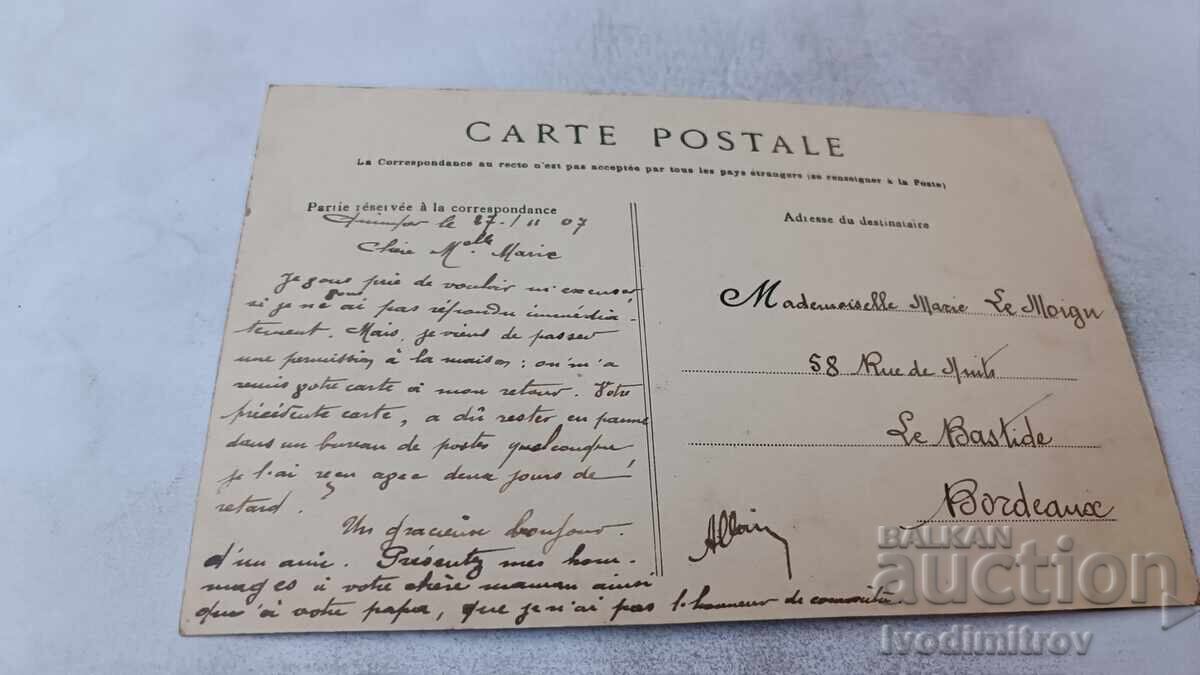 CARTE POSTALE
La Correspondance au recto n'est pas acceptée par tous les pays étrangers (se renseigner à la Poste)
Partie réservée à la correspondance
Quimper le 27-/ 11 07
Chère Melle Marie
Je vous prie de vouloir m'excuser,
si je ne vous ai pas répondu immédia-
tement. Mais, je viens de passer
une permission à la maison; on m'a
remis votre carte à mon retour. Votre
précédente carte, a dû rester en panne
dans un bureau de postes quelconque
je l'ai reçu avec deux jours de
retard.
Un gracieux bonjour
d'un ami. Présentez mes hom-
mages à votre chère maman ainsi
qu'à votre papa, que je n'ai pas l'honneur de connaître.
Adresse du destinataire
Mademoiselle Marie Le Moign
58 Rue de Nuits
Le Bastide
Bordeaux
Allain
BALKAN
auction
Ivodimitrov